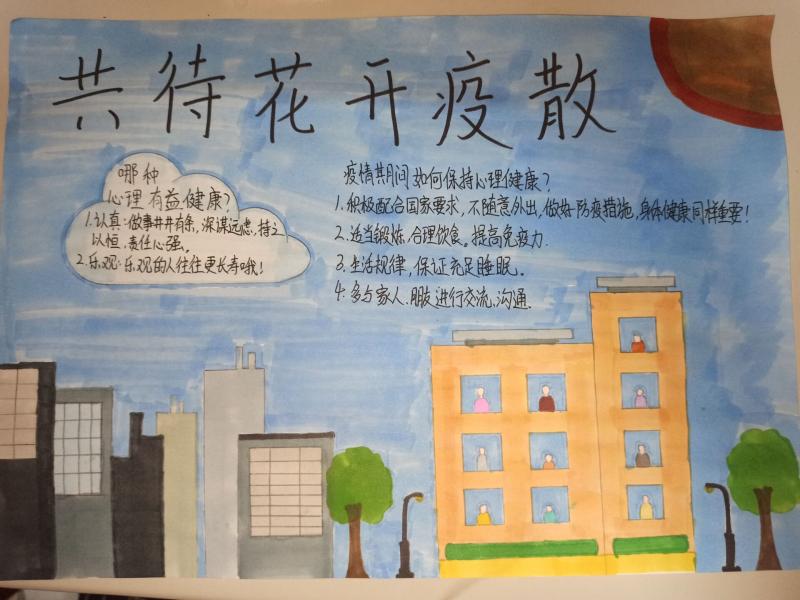 共待花开疫散
哪种
心理有益健康?
1.认真:做事井井有条,深谋远虑,持之
以恒,责任心强。
2.乐观:乐观的人往往更长寿哦!
疫情共月间如何保持心理健康?
1.积极配合国家要求,不随意外出,做好防疫措施,身体健康同样重要!
2.适当锻炼,合理饮食。提高免疫力.
3.生活规律,保证充足睡眠。
4.多与家人.朋友进行交流、沟通.